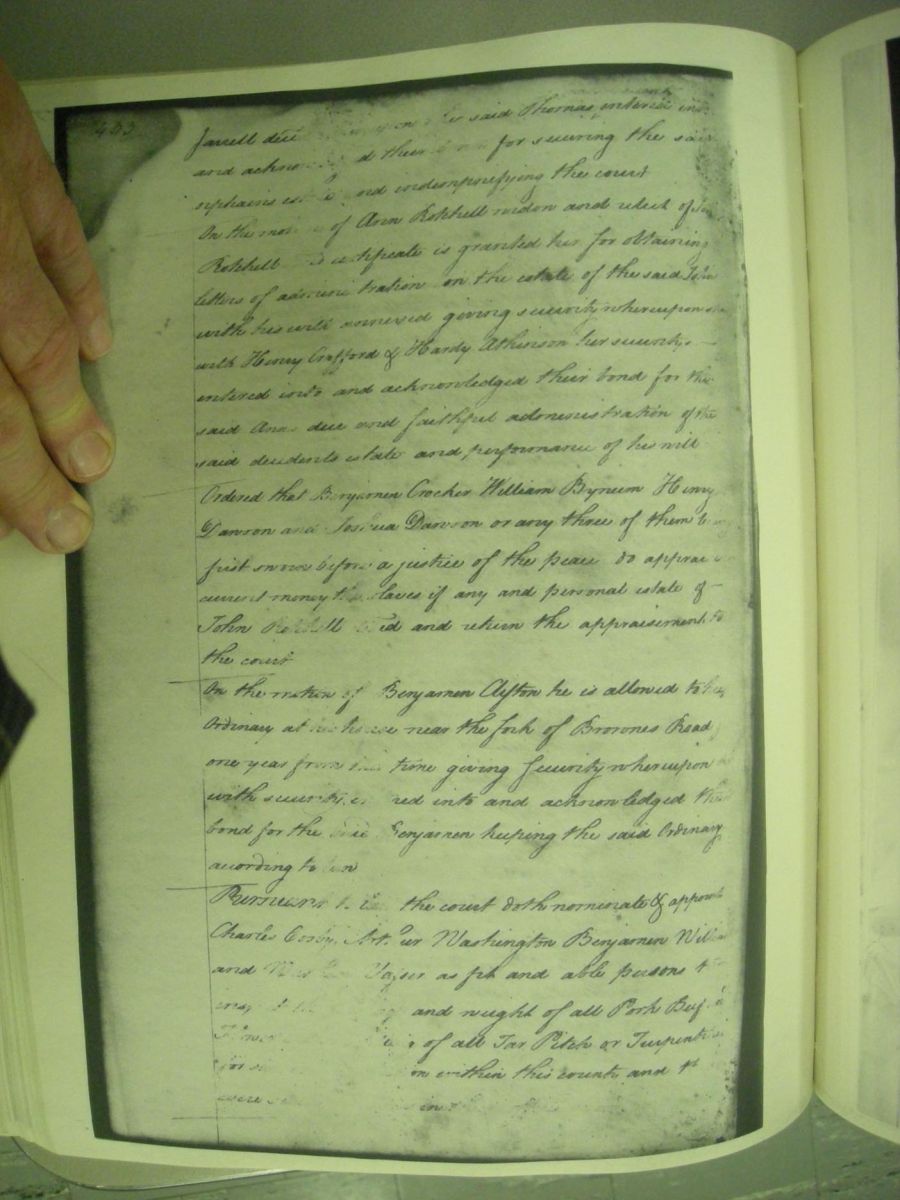 453
Jarrell decd said Thomas entered
and their for securing the said
orphains and indemnifying the court
On the of Ann Rotchell widow and relict of
Rotchell certificate is granted her for obtaining
letters of administration on the estate of the said John
with his will annexed giving security whereupon she
with Henry Crafford & Hardy Atkinson her security
entered into and acknowledged their bond for the
said Anns due and faithful administration of the
said decedents estate and performance of his will
Ordered that Benjamen Crocker William Bynum Henry
Dawson and Joshua Dawson or any three of them
first sworn before a justice of the peace do
current money the slaves if any and personal estate of
John Rotchell and return the appraisement to
the court
On the motion of Benjamen Clifton he is allowed to
Ordinary at his house near the fork of Brownes Road
one year from time giving security whereupon
with into and acknowledged
bond for the said Benjamen keeping the said Ordinary
according to law
Pursuant to the court doth nominate & appoint
Charles Cosby Arthur Washington Benjamen
and as fit and able persons
and weight of all Pork Beef
of all Tar Pitch or
within this county and